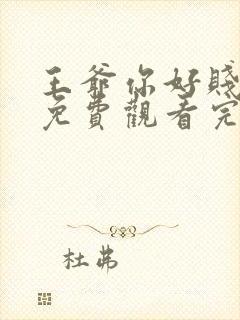 王爺你好賤
免費觀看完
杜弗